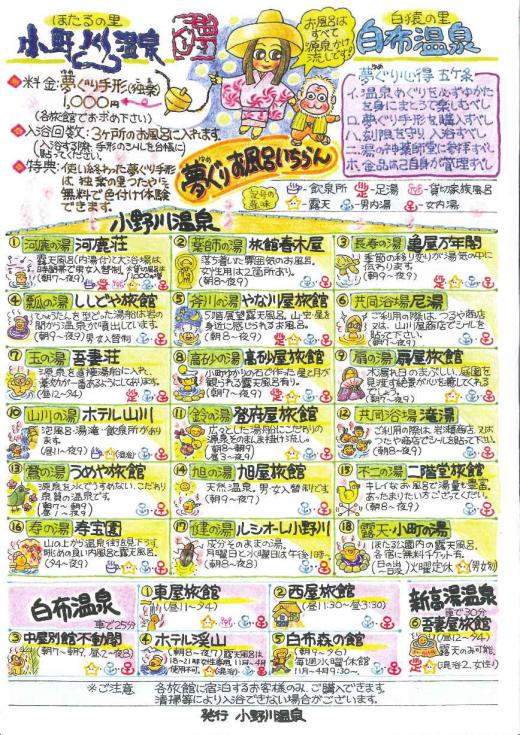 ほたるの里
小野川温泉
お風呂は
すべて
源泉かけ
流しです!
白猿の里
白布温泉
料金:夢ぐり手形(独楽)
1,000円
(各旅館でお求め下さい)
入浴回数:3ヶ所のお風呂に入れます。
(入浴する際、手形のシールを台帳に
貼ってください。)
特典:使い終わった夢ぐり手形
は、独楽の里つたやに
無料で色付け体験
できます。
夢ぐり心得 五ヶ条
イ.温泉めぐりを必ずゆかた
を身にまとうて楽しむべし
ロ.夢ぐり手形を購入すべし
ハ.刻限を守り、入浴すべし
ニ.湯の神薬師堂に参拝すべし
ホ.金品は己自身が管理すべし
夢ぐりお風呂いちらん
記号の意味
-飲泉所 -足湯 -貸切家族風呂
-露天 -男内湯 -女内湯
小野川温泉
① 河鹿の湯 河鹿荘
露天風呂(内湯付)と大浴場は
時間帯で男女入替制。
(朝7~夜9)
② 薬師の湯 旅館春木屋
落ち着いた雰囲気のお風呂。
女性用は2箇所あり。
(朝8~夜9)
③ 長寿の湯 亀屋万年閣
季節の移り変りが湯気の中に
伝わります。
(朝9~夜9)
④ 瓢の湯 ししどや旅館
ひょうたんを型どった湯船は岩の
間から温泉が噴出しています。
(朝9~夜9)男女入替制
⑤ 斧川の湯 やな川屋旅館
5階展望露天風呂。山・空・星を
身近に感じられるお風呂。
(朝8~夜9)
⑥ 共同浴場 尼湯
ご利用の際は、つるや商店
又は、山川屋商店でシールを
貼って下さい。
(朝7~夜9)
⑦ 玉の湯 吾妻荘
源泉を直接湯船に入れ、
(昼12~夕4)
⑧ 高砂の湯 高砂屋旅館
小町ゆかりの石で作った星と月が
観られる露天風呂有り。
(朝7~夜9)
⑨ 扇の湯 扇屋旅館
木漏れ日のまぶしい、庭園を
見渡す絶景が心を癒してくれる
でしょう。
(朝7~夜9)
⑩ 山川の湯 ホテル山川
泡風呂・湯滝・飲泉所があり
ます。
(昼11~夜9)
⑪ 鈴の湯 登府屋旅館
広々とした湯船にこだわりの
源泉をそのまんま掛け流し。
(朝8~朝9)
(昼3~夜9)
⑫ 共同浴場 滝湯
ご利用の際は、岩瀬商店、又は
つたや商店でシールを貼って下さい。
(朝8~夜9)
⑬ 鶯の湯 うめや旅館
源泉を水でうすめない、こだわり
泉質の温泉です。
(朝7~朝9)
⑭ 旭の湯 旭屋旅館
天然温泉。男・女入替制です。
(朝9~夜9)
⑮ 不二の湯 二階堂旅館
キレイなお風呂で湯量も豊富。
あったまりたい方ここでください。
(朝9~夜9)
⑯ 寿の湯 寿宝園
山の上から温泉街を見下ろす
眺めの良い内風呂と露天風呂。
(夕4~夜9)
⑰ 健の湯 ルシオーレ小野川
成分そのままの湯。
月曜日と水曜日は午後1時~
(朝8~夜8)
⑱ 露天・小町の湯
ほたる公園内の露天風呂。
各宿に無料チケット有。
(日の出~日没)火曜定休 (男女別)
白布温泉
車で25分
① 東屋旅館
(昼11~夕4)
② 西屋旅館
(昼11:30~昼3:30)
新高湯温泉
車で30分
③ 中屋別館不動閣
(朝7~朝9、昼2~夜8)
④ ホテル渓山
(朝8~夜7)露天風呂は
18~21時女性専用。11月~4月
使用不可。
⑤ 白布森の館
(朝9~夕6)
毎週水曜休館
11月~4月9:30~
⑥ 吾妻屋旅館
(昼12~夕4)
露天のみ可能。
(混浴2、女性1)
※ご注意 各旅館に宿泊するお客様のみ、ご購入できます。
清掃等により入浴できない場合がございます。
発行 小野川温泉